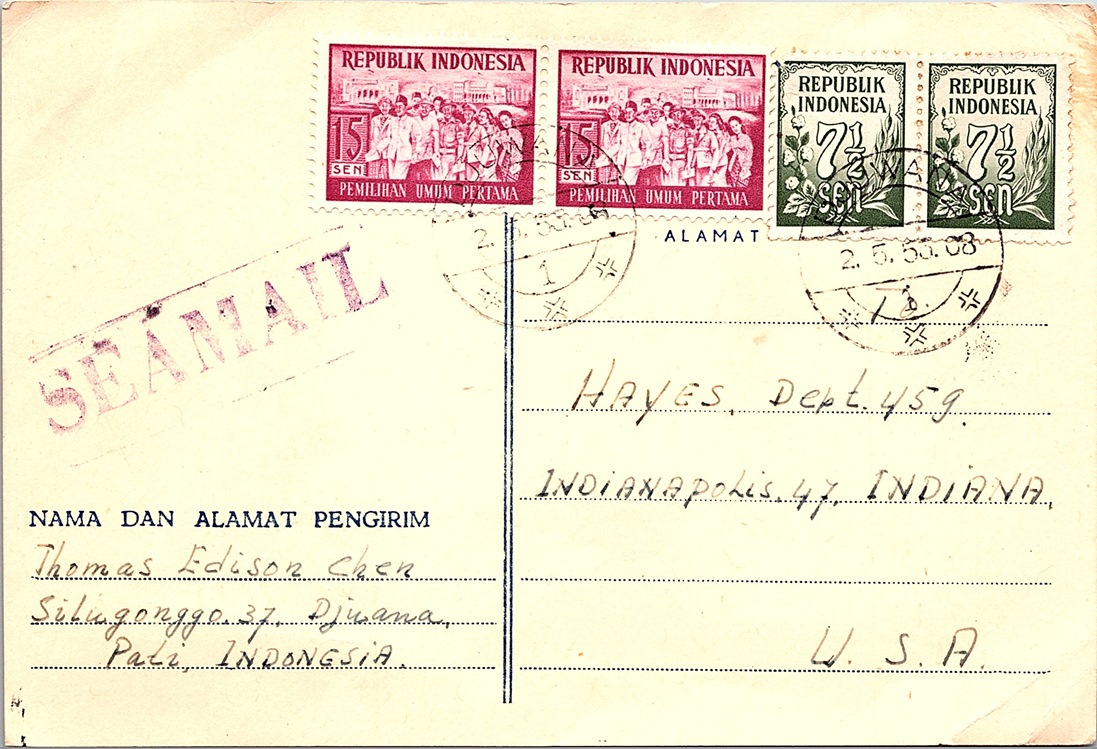 REPUBLIK INDONESIA
15
SEN
PEMILIHAN UMUM PERTAMA
REPUBLIK INDONESIA
15
SEN
PEMILIHAN UMUM PERTAMA
REPUBLIK
INDONESIA
7½
SEN
REPUBLIK
INDONESIA
7½
SEN
1
2. 5. 55. 08
ALAMAT
SEAMAIL
HAYES, Dept. 459.
INDIANAPOLIS. 47, INDIANA,
U. S. A.
NAMA DAN ALAMAT PENGIRIM
Thomas Edison Chen
Silugonggo. 37, Djuana,
Pati, INDONESIA.